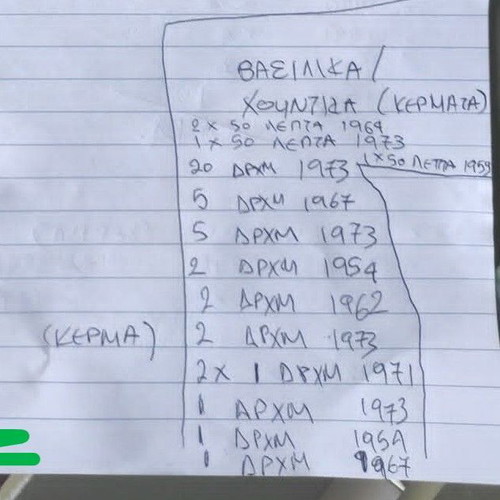 ΒΑΣΙΛΙΚΑ/
ΧΟΥΝΤΙΚΑ (ΚΕΡΜΑΤΑ)
2 x 50 ΛΕΠΤΑ 1964
1 x 50 ΛΕΠΤΑ 1973
20 ΔΡΧΜ 1973 1 x 50 ΛΕΠΤΑ 1959
5 ΔΡΧΜ 1967
5 ΔΡΧΜ 1973
2 ΔΡΧΜ 1954
2 ΔΡΧΜ 1962
(ΚΕΡΜΑ) 2 ΔΡΧΜ 1973
2 x 1 ΔΡΧΜ 1971
1 ΔΡΧΜ 1973
1 ΔΡΧΜ 1954
1 ΔΡΧΜ 1967